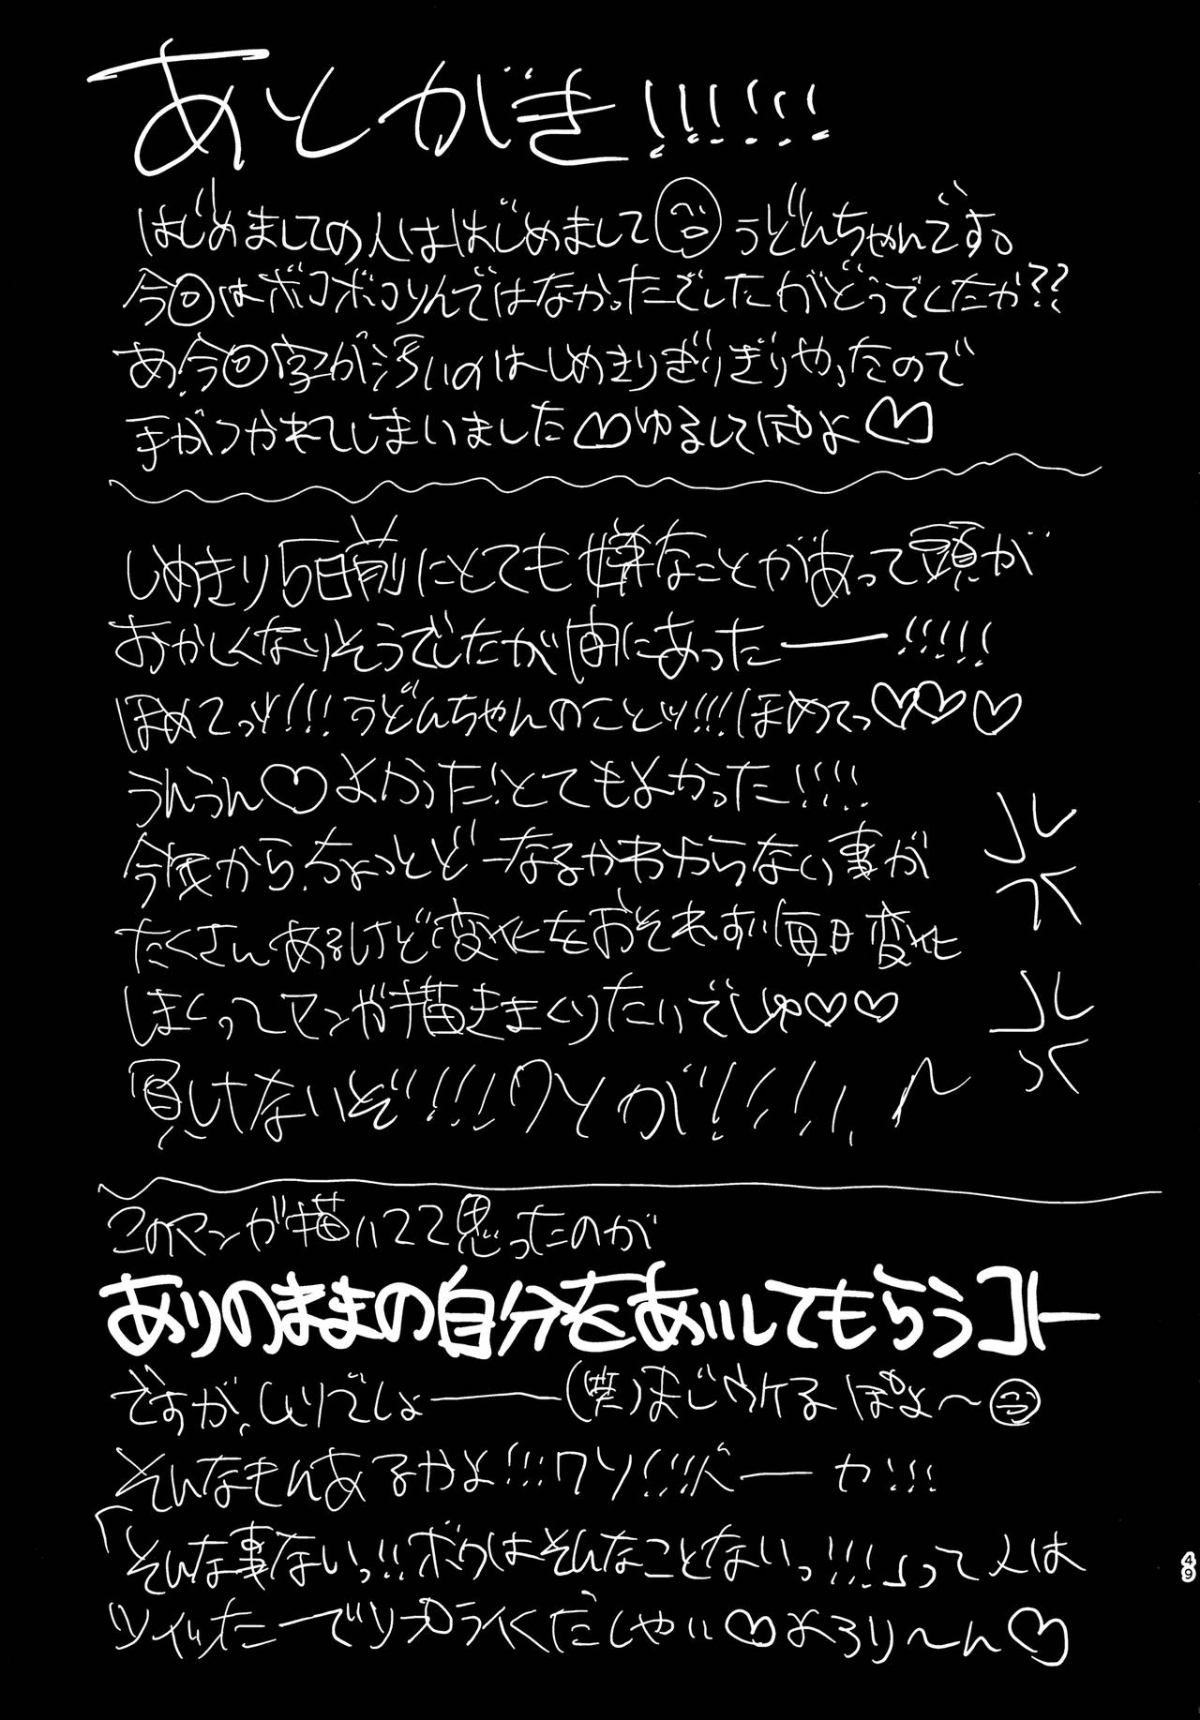 あとがき!!!!!!
はじめましての人ははじめまして うどんちゃんです。
今回はボコボコりんではなかったでしたがどうでしたか??
あ、今回字が汚いのはしめきりぎりぎりやったので
手がつかれてしまいました♡ゆるしてぽよ♡
しめきり5日前にとても嫌なことがあって頭が
おかしくなりそうでしたが間にあったー!!!!!
ほめてっッ!!!うどんちゃんのことッ!!!ほめてっ♡♡♡
うんうん♡よかった!とてもよかった!!!!
今後から、ちょっとどーなるかわからない事が
たくさんあるけど変化をおそれずい毎日変化
しまくってマンガ描きまくりたいでしゅ♡♡
負けないぞ!!!!クソが!!!!!
このマンガ描いてて思ったのが
ありのままの自分をあいしてもらうコト
ですが、ムリでしょー(笑)まじウケるぽよ〜
そんなもんあるかよ!!!クソ!!!バーカ!!!
「そんな事ないっ!!ボクはそんなことないっ!!!」って人は
ツイッたーでリプライくだしゃい♡よろり〜ん♡
49